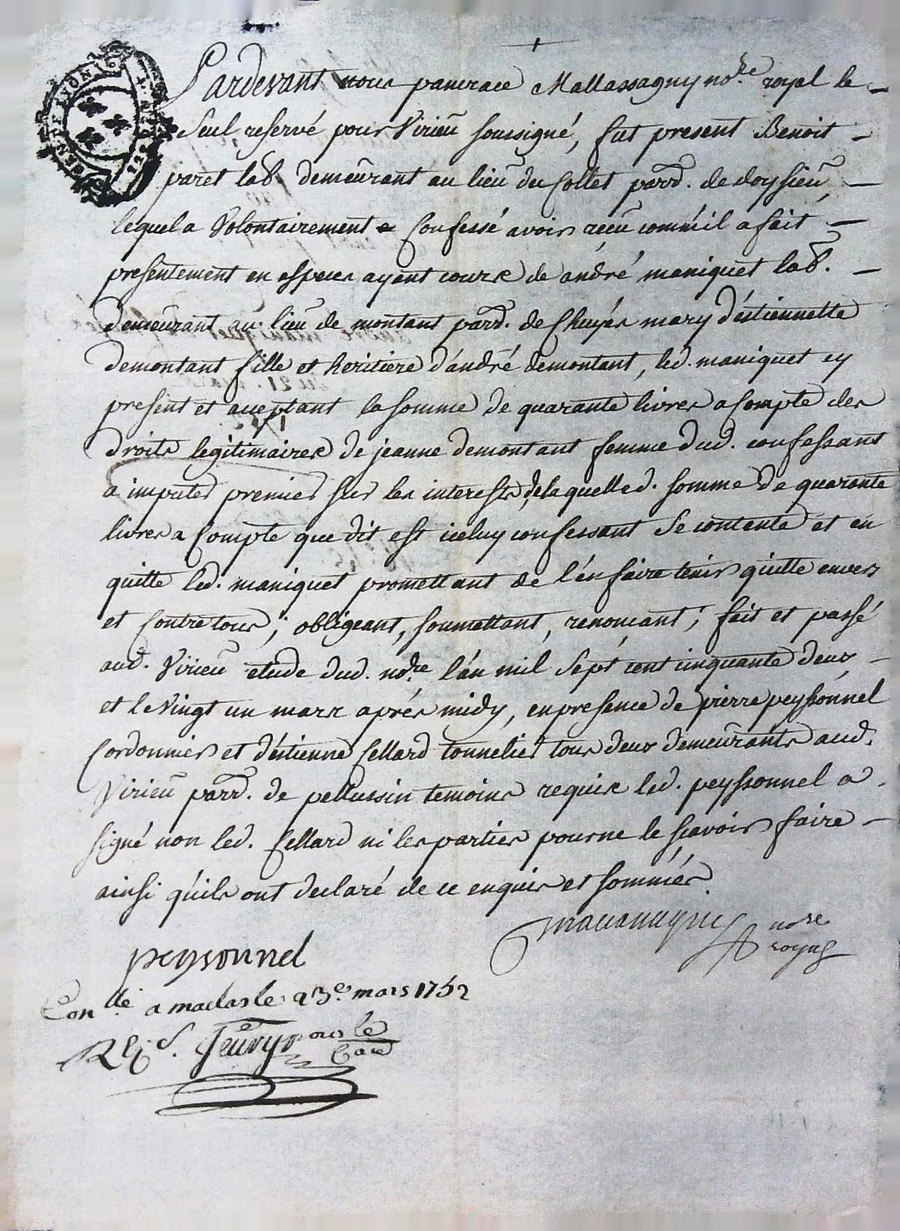 Pardevant nous pancrace Mallassagny no.re royal le
Seul reservé pour Virieu soussigné, fut present Benoit
paret lab. demeurant au lieu du Collet parr. de doysieu
lequel a Volontairement Confessé avoir reçeu comm'il a fait
presentement en especes ayent cours de andré maniquet lab.
demeurant au lieu de montant parr. de Chuyés mary d'éstiennette
demontant fille et heritiere d'andré demontant, led. maniquet cy
present et aceptant la somme de quarante livres a Compte des
droits legitimaires de jeanne demontant femme dud. confessant
a imputer premier sur les interests, de laquelle d. somme de quarante
livres a Compte que dit est iceluy confessant se contente et en
quitte led. maniquet promettant de l'en faire tenir quitte envers
et Contre tous; obligeant, soumettant, renonçant; fait et passé
aud. Virieu etude dud. no.re l'an mil sept cent cinquante deux
et le vingt un mars aprés midy, en presence de pierre peyssonnel
Cordonnier et d'étienne Cellard tonnelier tous deux demeurants aud.
Virieu parr. de pellussin temoins requis led. peyssonnel a
signé non led. Cellard ni les parties pour ne le sçavoir faire
ainsi qu'ils ont declaré de ce enquis et sommés.
no.re
royal
peyssonnel
Con.llé a maclas le 23e mars 1752